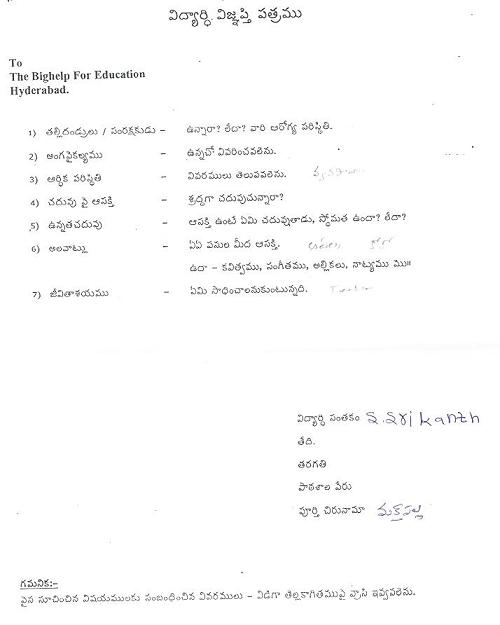 విద్యార్థి విజ్ఞప్తి పత్రము
To
The Bighelp For Education
Hyderabad.
1) తల్లిదండ్రులు / సంరక్షకుడు – ఉన్నారా? లేదా? వారి ఆరోగ్య పరిస్థితి.
2) అంగవైకల్యము – ఉన్నచో వివరించవలెను.
3) ఆర్థిక పరిస్థితి – వివరములు తెలుపవలెను.
4) చదువు పై ఆసక్తి – శ్రద్ధగా చదువుచున్నారా?
5) ఉన్నతచదువు – ఆసక్తి ఉంటే ఏమి చదువుతాడు, స్థోమత ఉందా? లేదా?
6) అలవాట్లు – ఏఏ పనుల మీద ఆసక్తి.
ఉదా – కవిత్వము, సంగీతము, అల్లికలు, నాట్యము మొ॥
7) జీవితాశయము – ఏమి సాధించాలనుకుంటున్నది.
విద్యార్థి సంతకం S. Srikanth
తేది.
తరగతి
పాఠశాల పేరు
పూర్తి చిరునామా
గమనిక:–
పైన సూచించిన విషయములకు సంబంధించిన వివరములు – విడిగా తెల్లకాగితముపై వ్రాసి ఇవ్వవలెను.